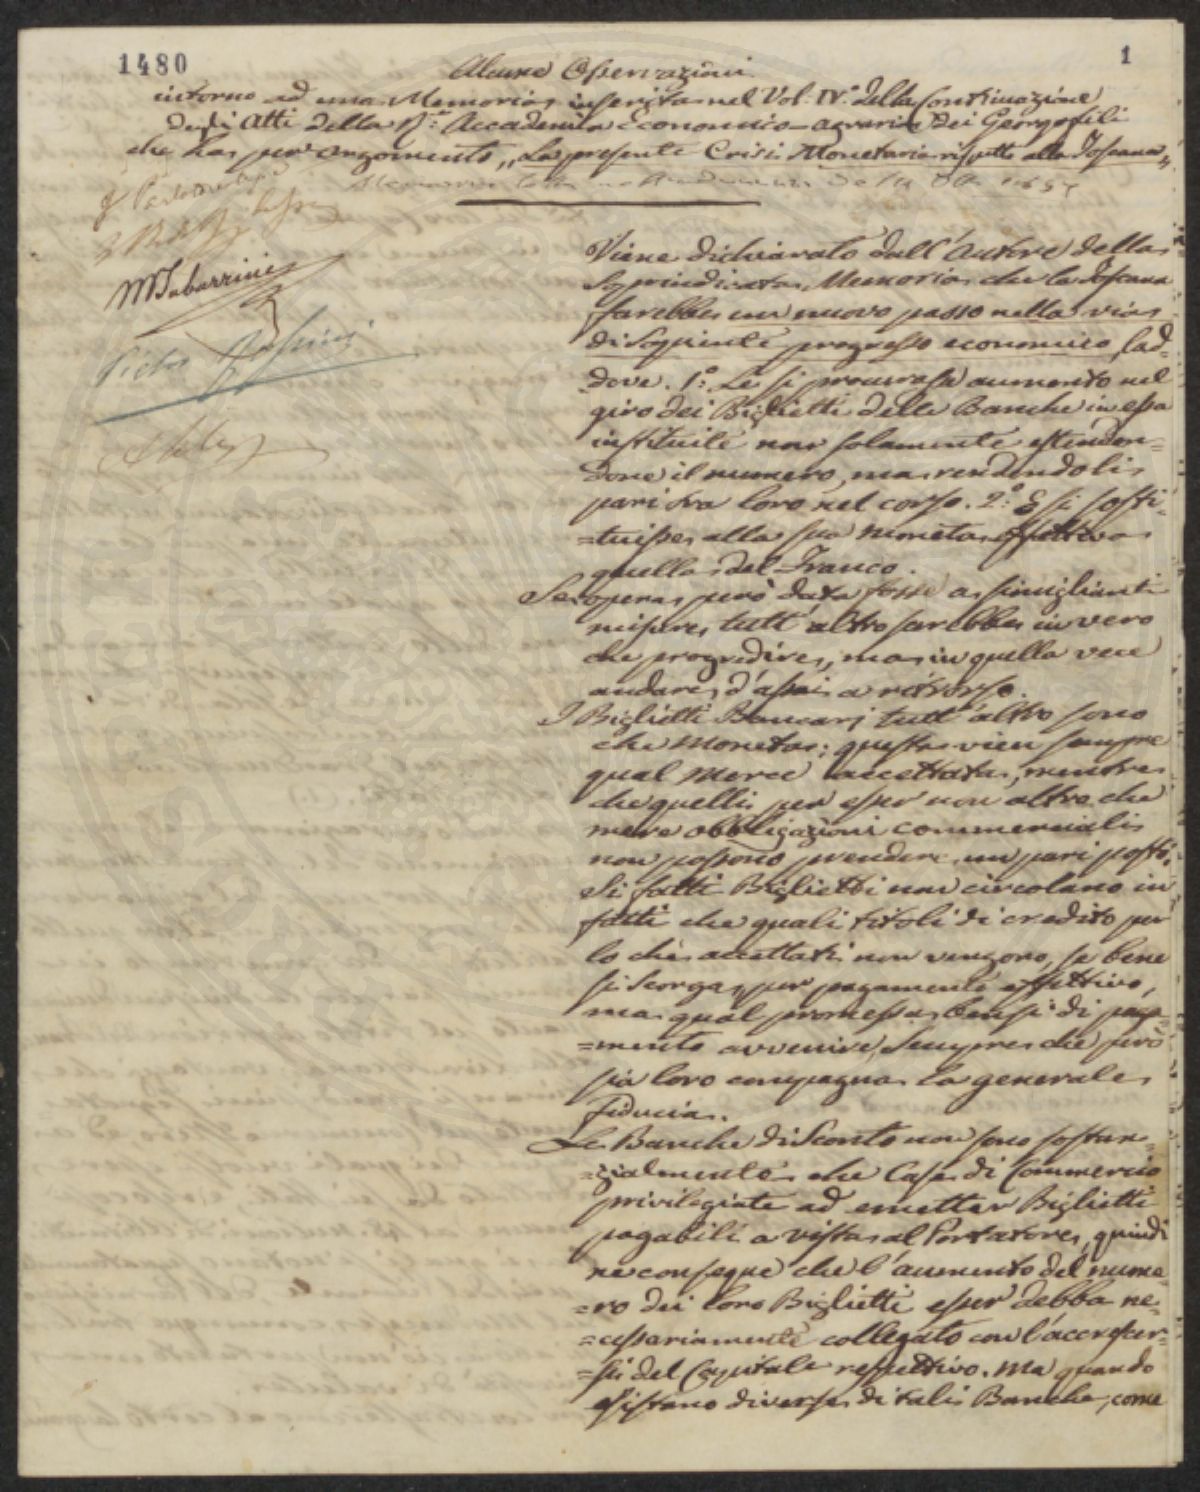 1480
1
Alcune Osservazioni
intorno ad una Memoria inserita nel Vol: IV.° della Continuazione
degli Atti della R.ª Accademia Economico-agraria dei Georgofili
che ha per argomento „La presente Crisi Monetaria rispetto alla Toscana„
Memoria letta
M Tabarrini
Viene dichiarato dall'Autore della
Sopraindicata Memoria che la Toscana
farebbe un nuovo passo nella via
di Sapiente progresso economico lad-
dove. 1.° Le si procurasse aumento nel
giro dei Biglietti delle Banche in essa
instituite non solamente estenden-
done il numero, ma rendendoli
pari tra loro nel corso. 2.° E si sosti-
=tuisse alla sua moneta effettiva
quella del Franco.
Se opera però data fosse a simiglianti
misure, tutt'altro sarebbe invero
che progredire, ma in quella vece
andare d'assai a ritroso.
I Biglietti Bancarj tutt'altro sono
che Moneta; questa vien sempre
qual Merce accettata, mentre
che quelli per esser non altro che
mere obbligazioni commerciali
non possono prendere un pari posto.
Si fatti Biglietti non circolano in
fatti che quali titoli di credito per
lo che accettati non vengono, se bene
si scorga, per pagamento effettivo,
ma qual promessa bensì di paga
=mento avvenire, sempre che però
sia loro compagna la generale
fiducia.
Le Banche di Sconto non sono sostan=
=zialmente che Case di Commercio
privilegiate ad emetter Biglietti
pagabili a vista al Portatore, quindi
ne consegue che l'aumento del nume
=ro dei loro Biglietti esser debba ne=
=cessariamente collegato con l'accrescer=
=si del Capitale respettivo. Ma quando
esistano diverse di tali Banche, come